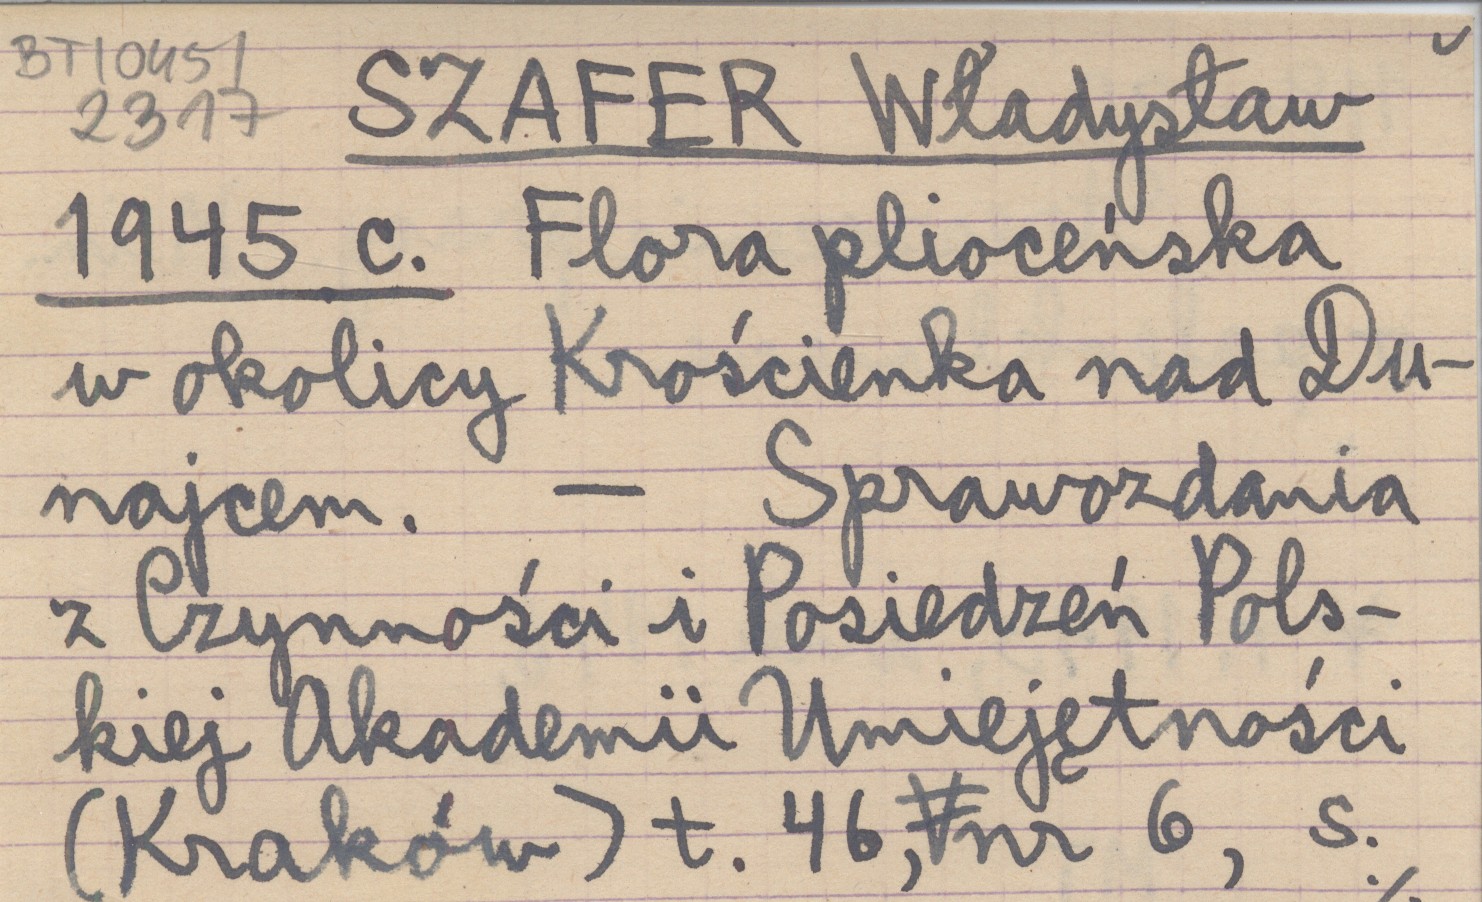 BT1045/
2317
SZAFER Władysław
1945 c. Flora plioceńska
w okolicy Krościenka nad Du-
najcem. — Sprawozdania
z Czynności i Posiedzeń Pols-
kiej Akademii Umiejętności
(Kraków) t. 46, nr 6, s.
./.